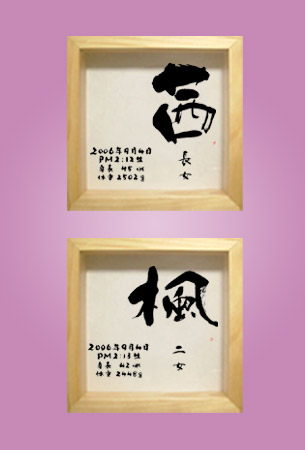 茜
長女
2006年9月4日
PM2:12生
身長 45cm
体重 2502g
楓
二女
2006年9月4日
PM2:13生
身長 42cm
体重 2448g